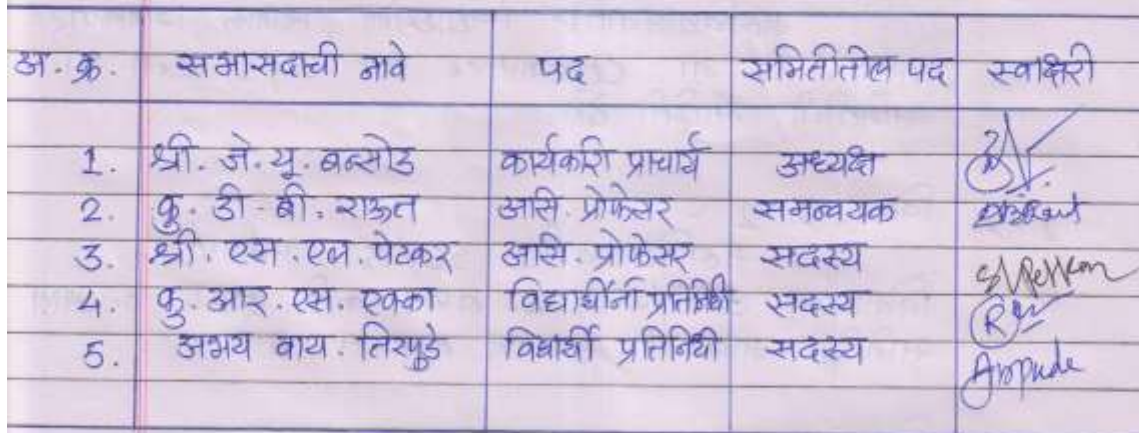 अ. क्र. सभासदाची नावे पद समितीतील पद स्वाक्षिरी
1. श्री. जे. यू. बन्सोड कार्यकारी प्राचार्य अध्यक्ष
2. कु. डी. बी. राऊत असि. प्रोफेसर समन्वयक
3. श्री. एस. एल. पेटकर असि. प्रोफेसर सदस्य
4. कु. आर. एस. एक्का विद्यार्थीनी प्रतिनिधी सदस्य
5. अभय वाय. तिरपुडे विद्यार्थी प्रतिनिधी सदस्य